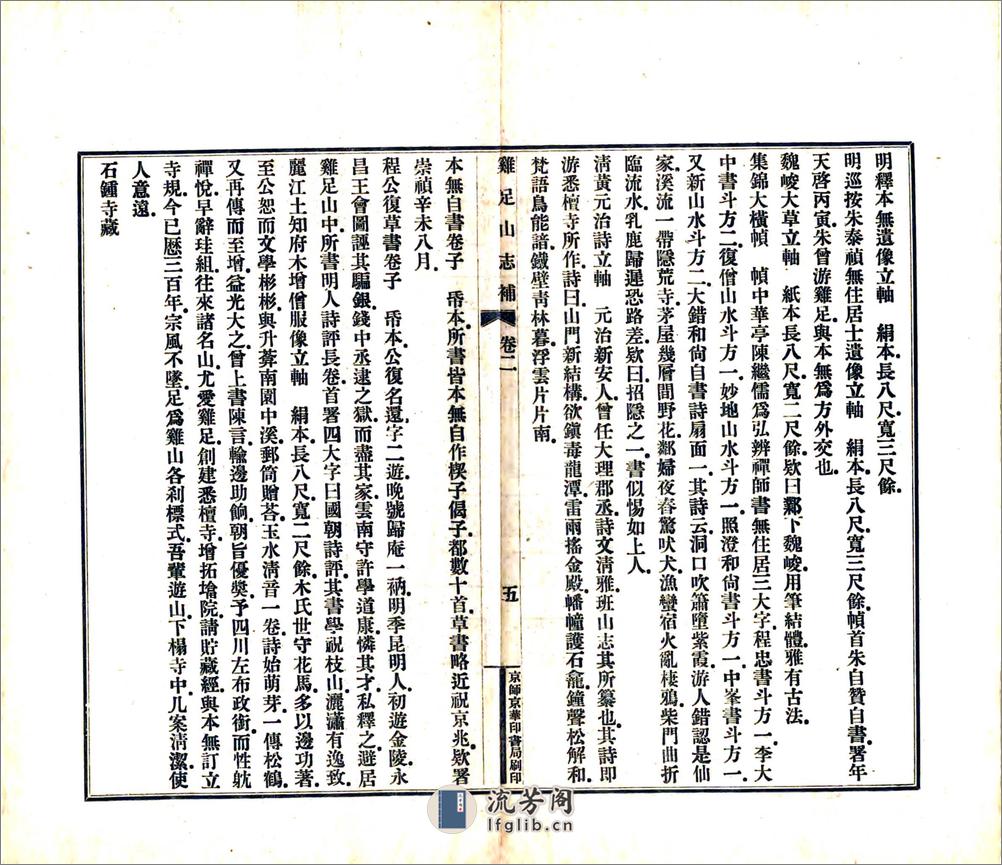 明釋本無遺像立軸　絹本長八尺寬三尺餘
明巡按朱泰禎無住居士遺像立軸　絹本長八尺寬三尺餘幀首朱自贊自書署年
天啓丙寅朱曾游雞足與本無爲方外交也
魏峻大草立軸　紙本長八尺寬二尺餘欵曰鄴下魏峻用筆結體雅有古法
集錦大橫幀　幀中華亭陳繼儒爲弘辨禪師書無住居三大字程忠書斗方一李大
中書斗方二復僧山水斗方一妙地山水斗方一照澄和尙書斗方一中峯書斗方一
又新山水斗方二大錯和尙自書詩扇面一其詩云洞口吹簫墮紫霞游人錯認是仙
家溪流一帶隱荒寺茅屋幾層間野花鄰婦夜舂驚吠犬漁蠻宿火亂棲鴉柴門曲折
臨流水乳鹿歸遲恐路差欵曰招隱之一書似惕如上人
淸黃元治詩立軸　元治新安人曾任大理郡丞詩文淸雅班山志其所纂也其詩卽
游悉檀寺所作詩曰山門新結構欲鎭毒龍潭雷雨搖金殿幡幢護石龕鐘聲松解和
梵語鳥能諳鐵壁靑林暮浮雲片片南
雞足山志補　卷二　五　京師京華印書局刷印
本無自書卷子　帋本所書皆本無自作楔子偈子都數十首草書略近祝京兆欵署
崇禎辛未八月
程公復草書卷子　帋本公復名還字二遊晚號歸庵一衲明季昆明人初遊金陵永
昌王會圖誣其騙銀錢中丞逮之獄而盡其家雲南守許學道康憐其才私釋之避居
雞足山中所書明人詩評長卷首署四大字曰國朝詩評其書學祝枝山灑瀟有逸致
麗江土知府木增僧服像立軸　絹本長八尺寬二尺餘木氏世守花馬多以邊功著
至公恕而文學彬彬與升菴南園中溪郵筒贈荅玉水淸音一卷詩始萌芽一傳松鶴
又再傳而至增益光大之曾上書陳言輸邊助餉朝旨優奬予四川左布政銜而性躭
禪悅早辭珪組往來諸名山尤愛雞足創建悉檀寺增拓墖院請貯藏經與本無訂立
寺規今已歷三百年宗風不墜足爲雞山各刹標式吾輩遊山下榻寺中几案淸潔使
人意遠
石鍾寺藏
流芳阁
lfglib.cn